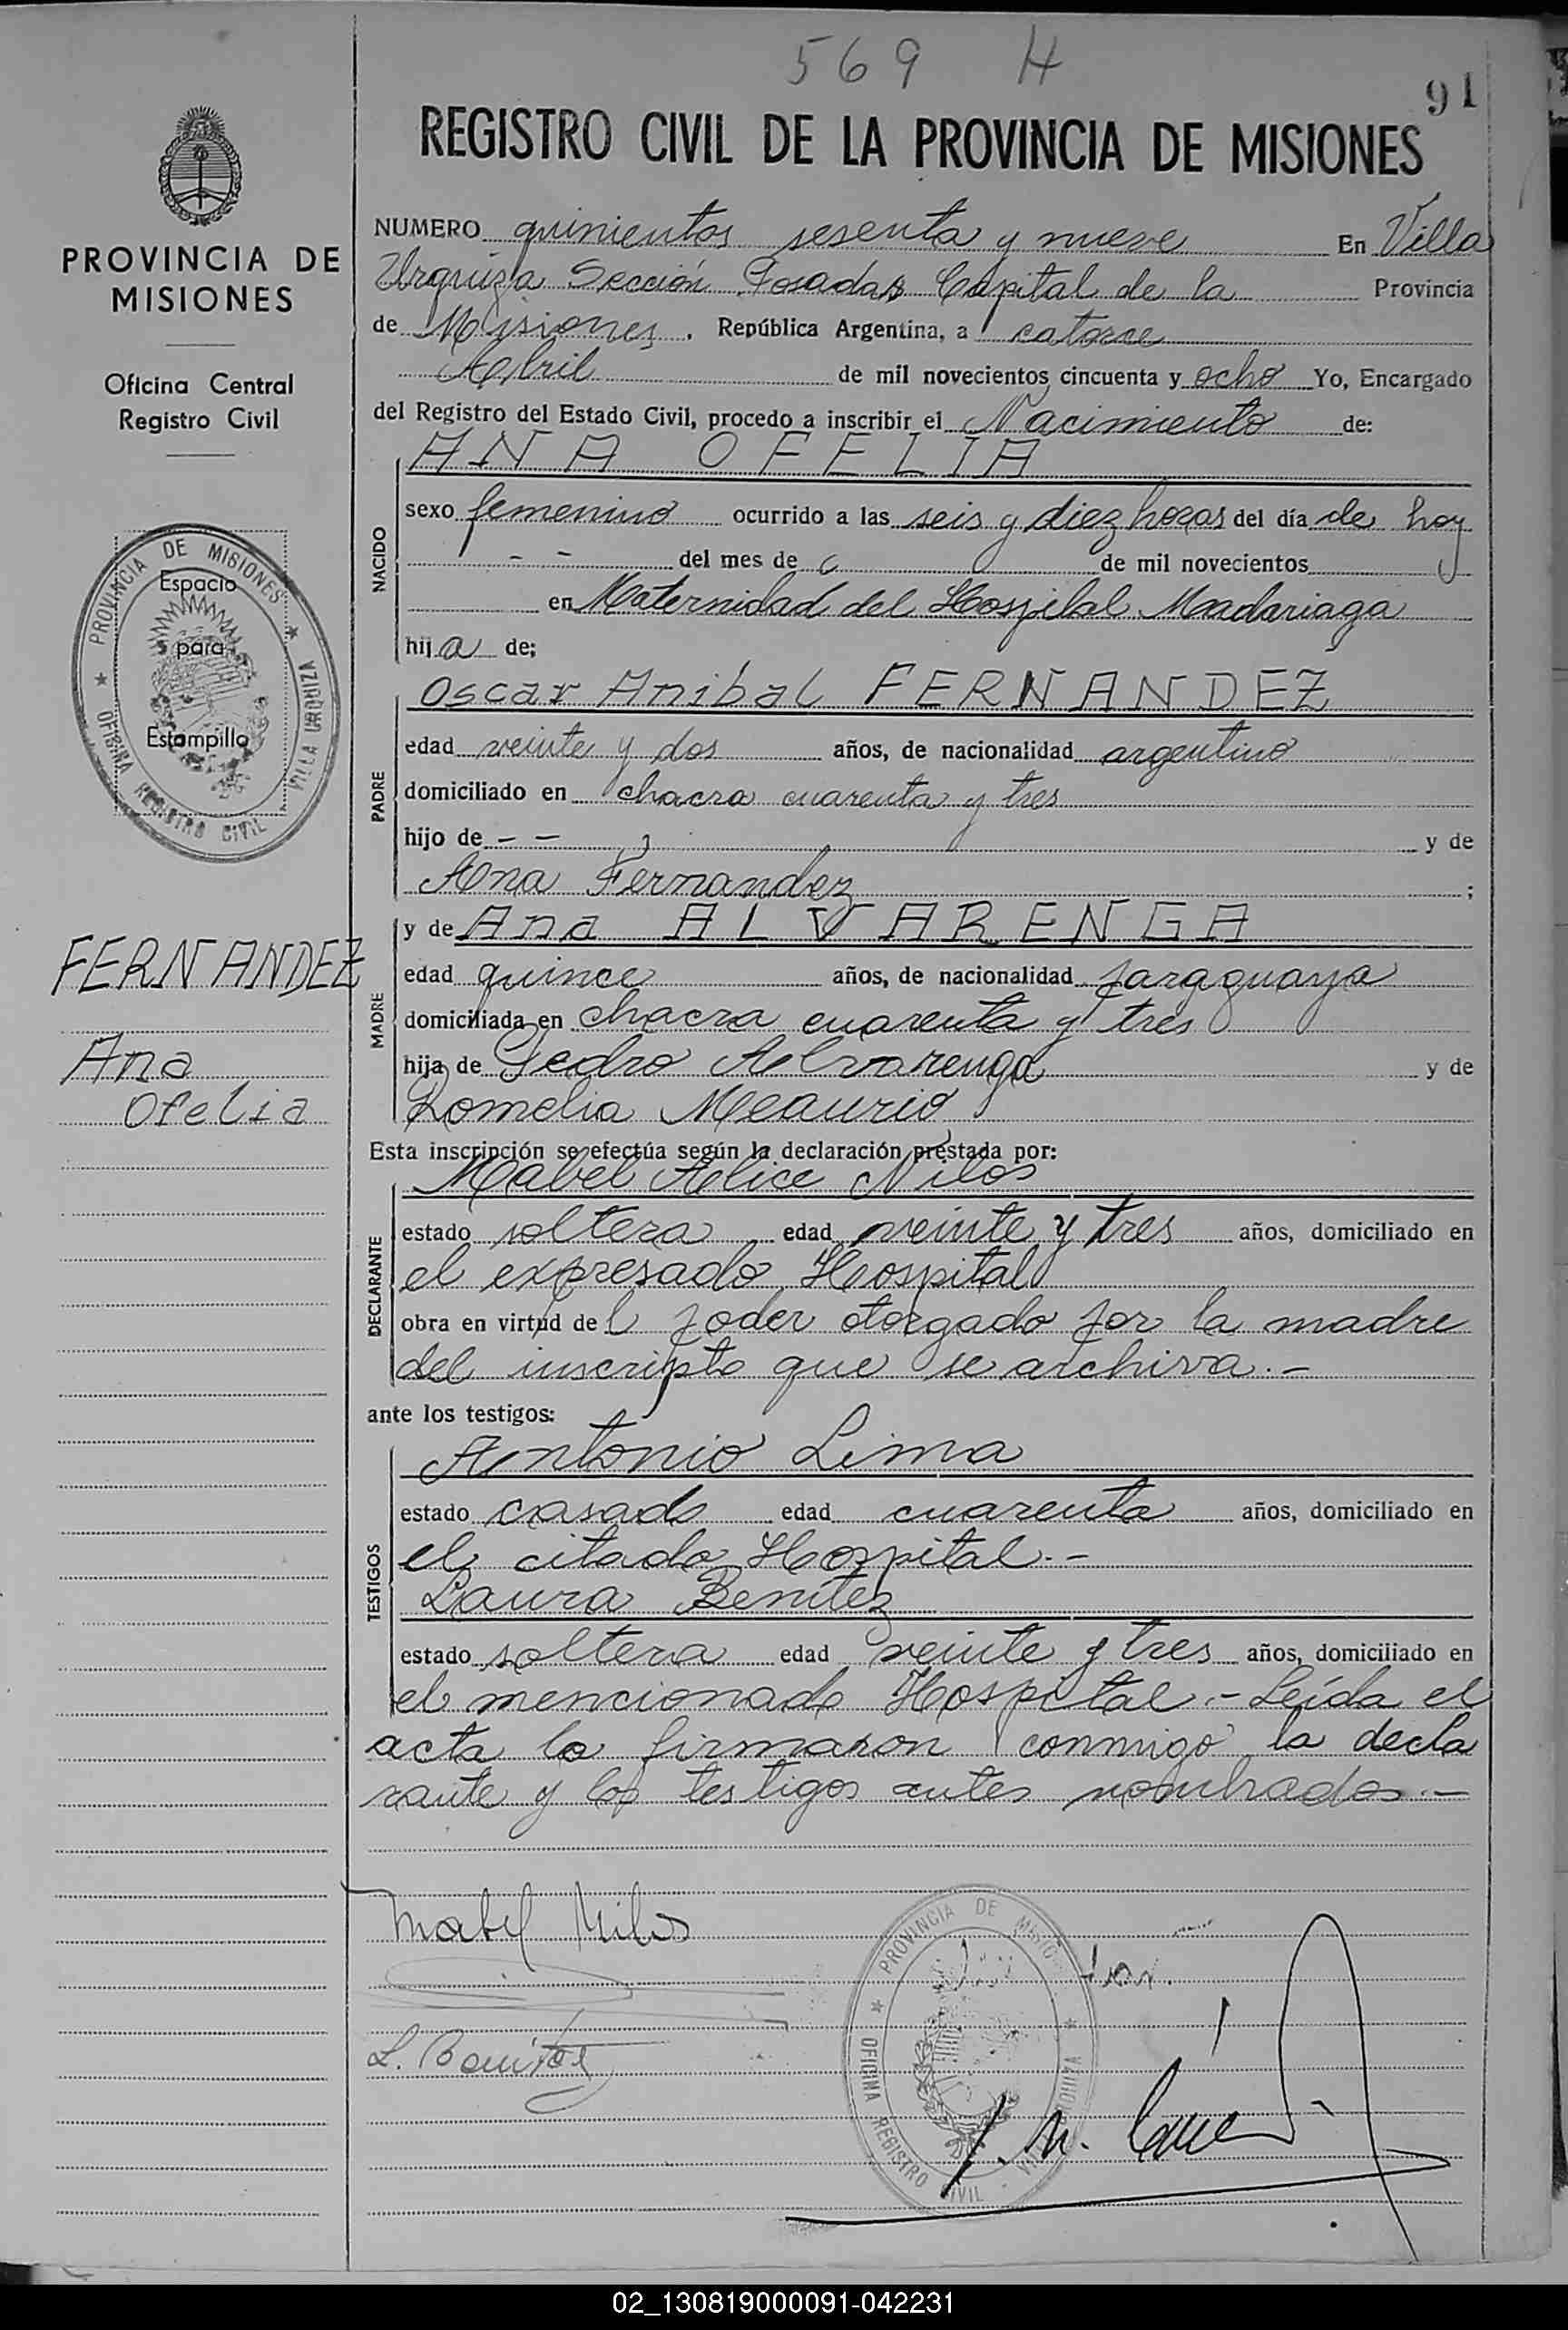 569 H
91
REGISTRO CIVIL DE LA PROVINCIA DE MISIONES
PROVINCIA DE
MISIONES
Oficina Central
Registro Civil
PROVINCIA DE MISIONES
OFICINA REGISTRO CIVIL
VILLA URQUIZA
Espacio
para
Estampilla
FERNANDEZ
Ana
Ofelia
NUMERO quinientos sesenta y nueve En Villa
Urquiza Sección Posadas Capital de la Provincia
de Misiones. República Argentina, a catorce
Abril de mil novecientos cincuenta y ocho Yo, Encargado
del Registro del Estado Civil, procedo a inscribir el Nacimiento de:
NACIDO
ANA OFELIA
sexo femenino ocurrido a las seis y diez horas del día de hoy
- - del mes de de mil novecientos
en Maternidad del Hospital Madariaga
hija de:
PADRE
Oscar Anibal FERNANDEZ
edad veinte y dos años, de nacionalidad argentino
domiciliado en chacra cuarenta y tres
hijo de - - y de
Ana Fernandez ;
MADRE
y de Ana ALVARENGA
edad quince años, de nacionalidad paraguaya
domiciliada en chacra cuarenta y tres
hija de Pedro Alvarenga y de
Romelia Meaurio
Esta inscripción se efectúa según la declaración prestada por:
DECLARANTE
Mabel Alice Nilos
estado soltera edad veinte y tres años, domiciliado en
el expresado Hospital
obra en virtud del poder otorgado por la madre
del inscripto que se archiva.-
ante los testigos:
TESTIGOS
Antonio Lima
estado casado edad cuarenta años, domiciliado en
el citado Hospital.-
Laura Benitez
estado soltera edad veinte y tres años, domiciliado en
el mencionado Hospital.- Leída el
acta la firmaron conmigo la decla
rante y los testigos antes nombrados.-
Mabel Nilos
L. Benitez
PROVINCIA DE MISIONES
OFICINA REGISTRO CIVIL
02_130819000091-042231